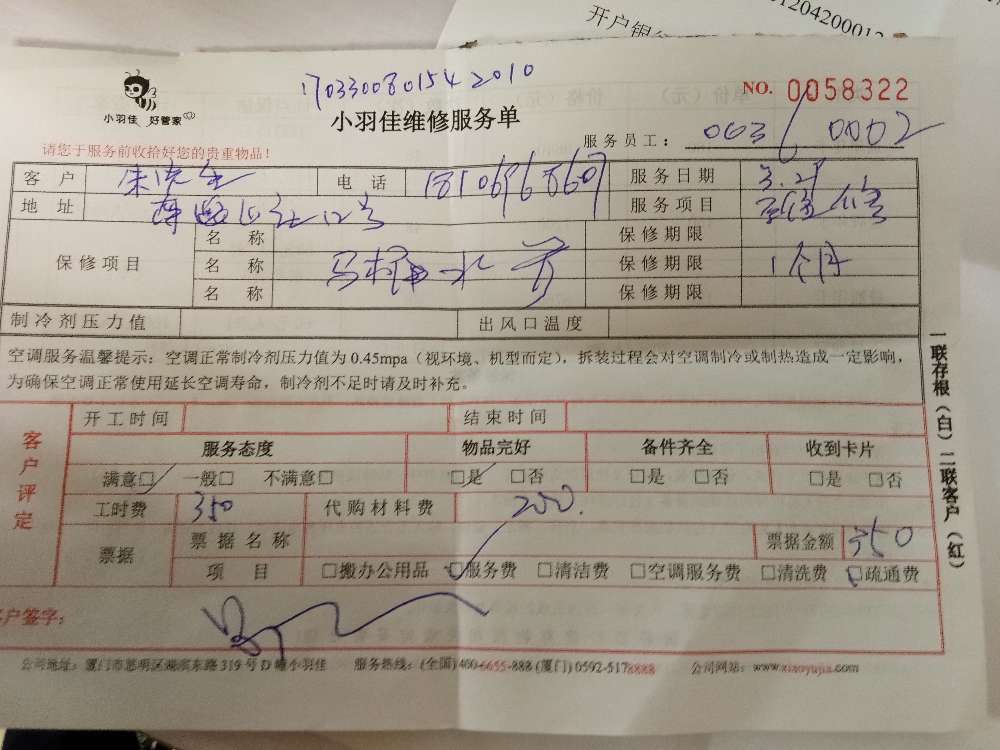 开户银
01204200012
1703300801542010
NO. 0058322
小羽佳 好管家
小羽佳维修服务单
服务员工： 0036 0002
请您于服务前收拾好您的贵重物品！
客户 朱先生 电话 服务日期 3.29
地址 12号 服务项目
名称 保修期限
保修项目 名称 马桶 水 保修期限 1个月
名称 保修期限
制冷剂压力值 出风口温度
空调服务温馨提示：空调正常制冷剂压力值为0.45mpa（视环境、机型而定），拆装过程会对空调制冷或制热造成一定影响，
为确保空调正常使用延长空调寿命，制冷剂不足时请及时补充。
开工时间 结束时间
客户评定 服务态度 物品完好 备件齐全 收到卡片
满意□ 一般□ 不满意□ □是 □否 □是 □否 □是 □否
工时费 350 代购材料费 200.
票据 票据名称 票据金额 350
项目 □搬办公用品 □服务费 □清洁费 □空调服务费 □清洗费 □疏通费
客户签字：
公司地址：厦门市思明区湖滨东路319号D幢小羽佳 服务热线：(全国)400-6655-888 (厦门)0592-5178888 公司网站：www.xiaoyujia.com
一联存根（白）二联客户（红）